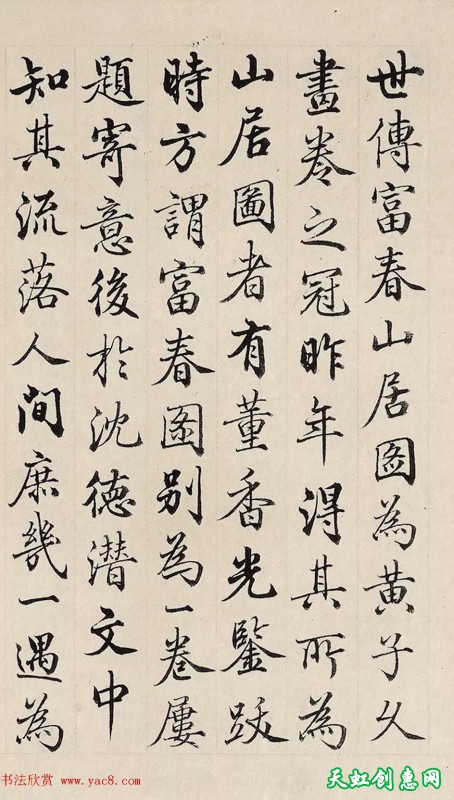 世傳富春山居圖為黃子久
畫卷之冠昨年得其所為
山居圖者有董香光鑒跋
時方謂富春圖别為一卷屢
題寄意後於沈德潛文中
知其流落人間庶幾一遇為
书法欣赏 www.yac8.com
天虹创惠网